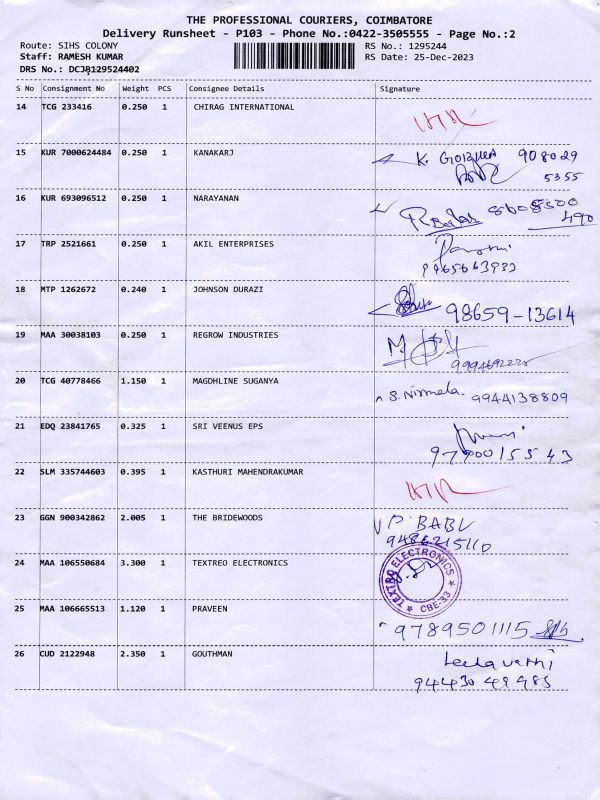 THE PROFESSIONAL COURIERS, COIMBATORE
Delivery Runsheet - P103 - Phone No.:0422-3505555 - Page No.:2
Route: SIHS COLONY RS No.: 1295244
Staff: RAMESH KUMAR RS Date: 25-Dec-2023
DRS No.: DCJB129524402
S No Consignment No Weight PCS Consignee Details Signature
14 TCG 233416 0.250 1 CHIRAG INTERNATIONAL
15 KUR 7000624484 0.250 1 KANAKARJ K. 908029
5355
16 KUR 693096512 0.250 1 NARAYANAN
490
17 TRP 2521661 0.250 1 AKIL ENTERPRISES
18 MTP 1262672 0.240 1 JOHNSON DURAZI 98659-13614
19 MAA 30038103 0.250 1 REGROW INDUSTRIES
20 TCG 40778466 1.150 1 MAGDHLINE SUGANYA S. Nirmala. 9944138809
21 EDQ 23841765 0.325 1 SRI VEENUS EPS
9790015543
22 SLM 335744603 0.395 1 KASTHURI MAHENDRAKUMAR
23 GGN 900342862 2.005 1 THE BRIDEWOODS P. BABU
9486215110
24 MAA 106550684 3.300 1 TEXTREO ELECTRONICS TEXTREO ELECTRONICS
CBE-33
25 MAA 106665513 1.120 1 PRAVEEN 9789501115
26 CUD 2122948 2.350 1 GOUTHMAN Leelavathi